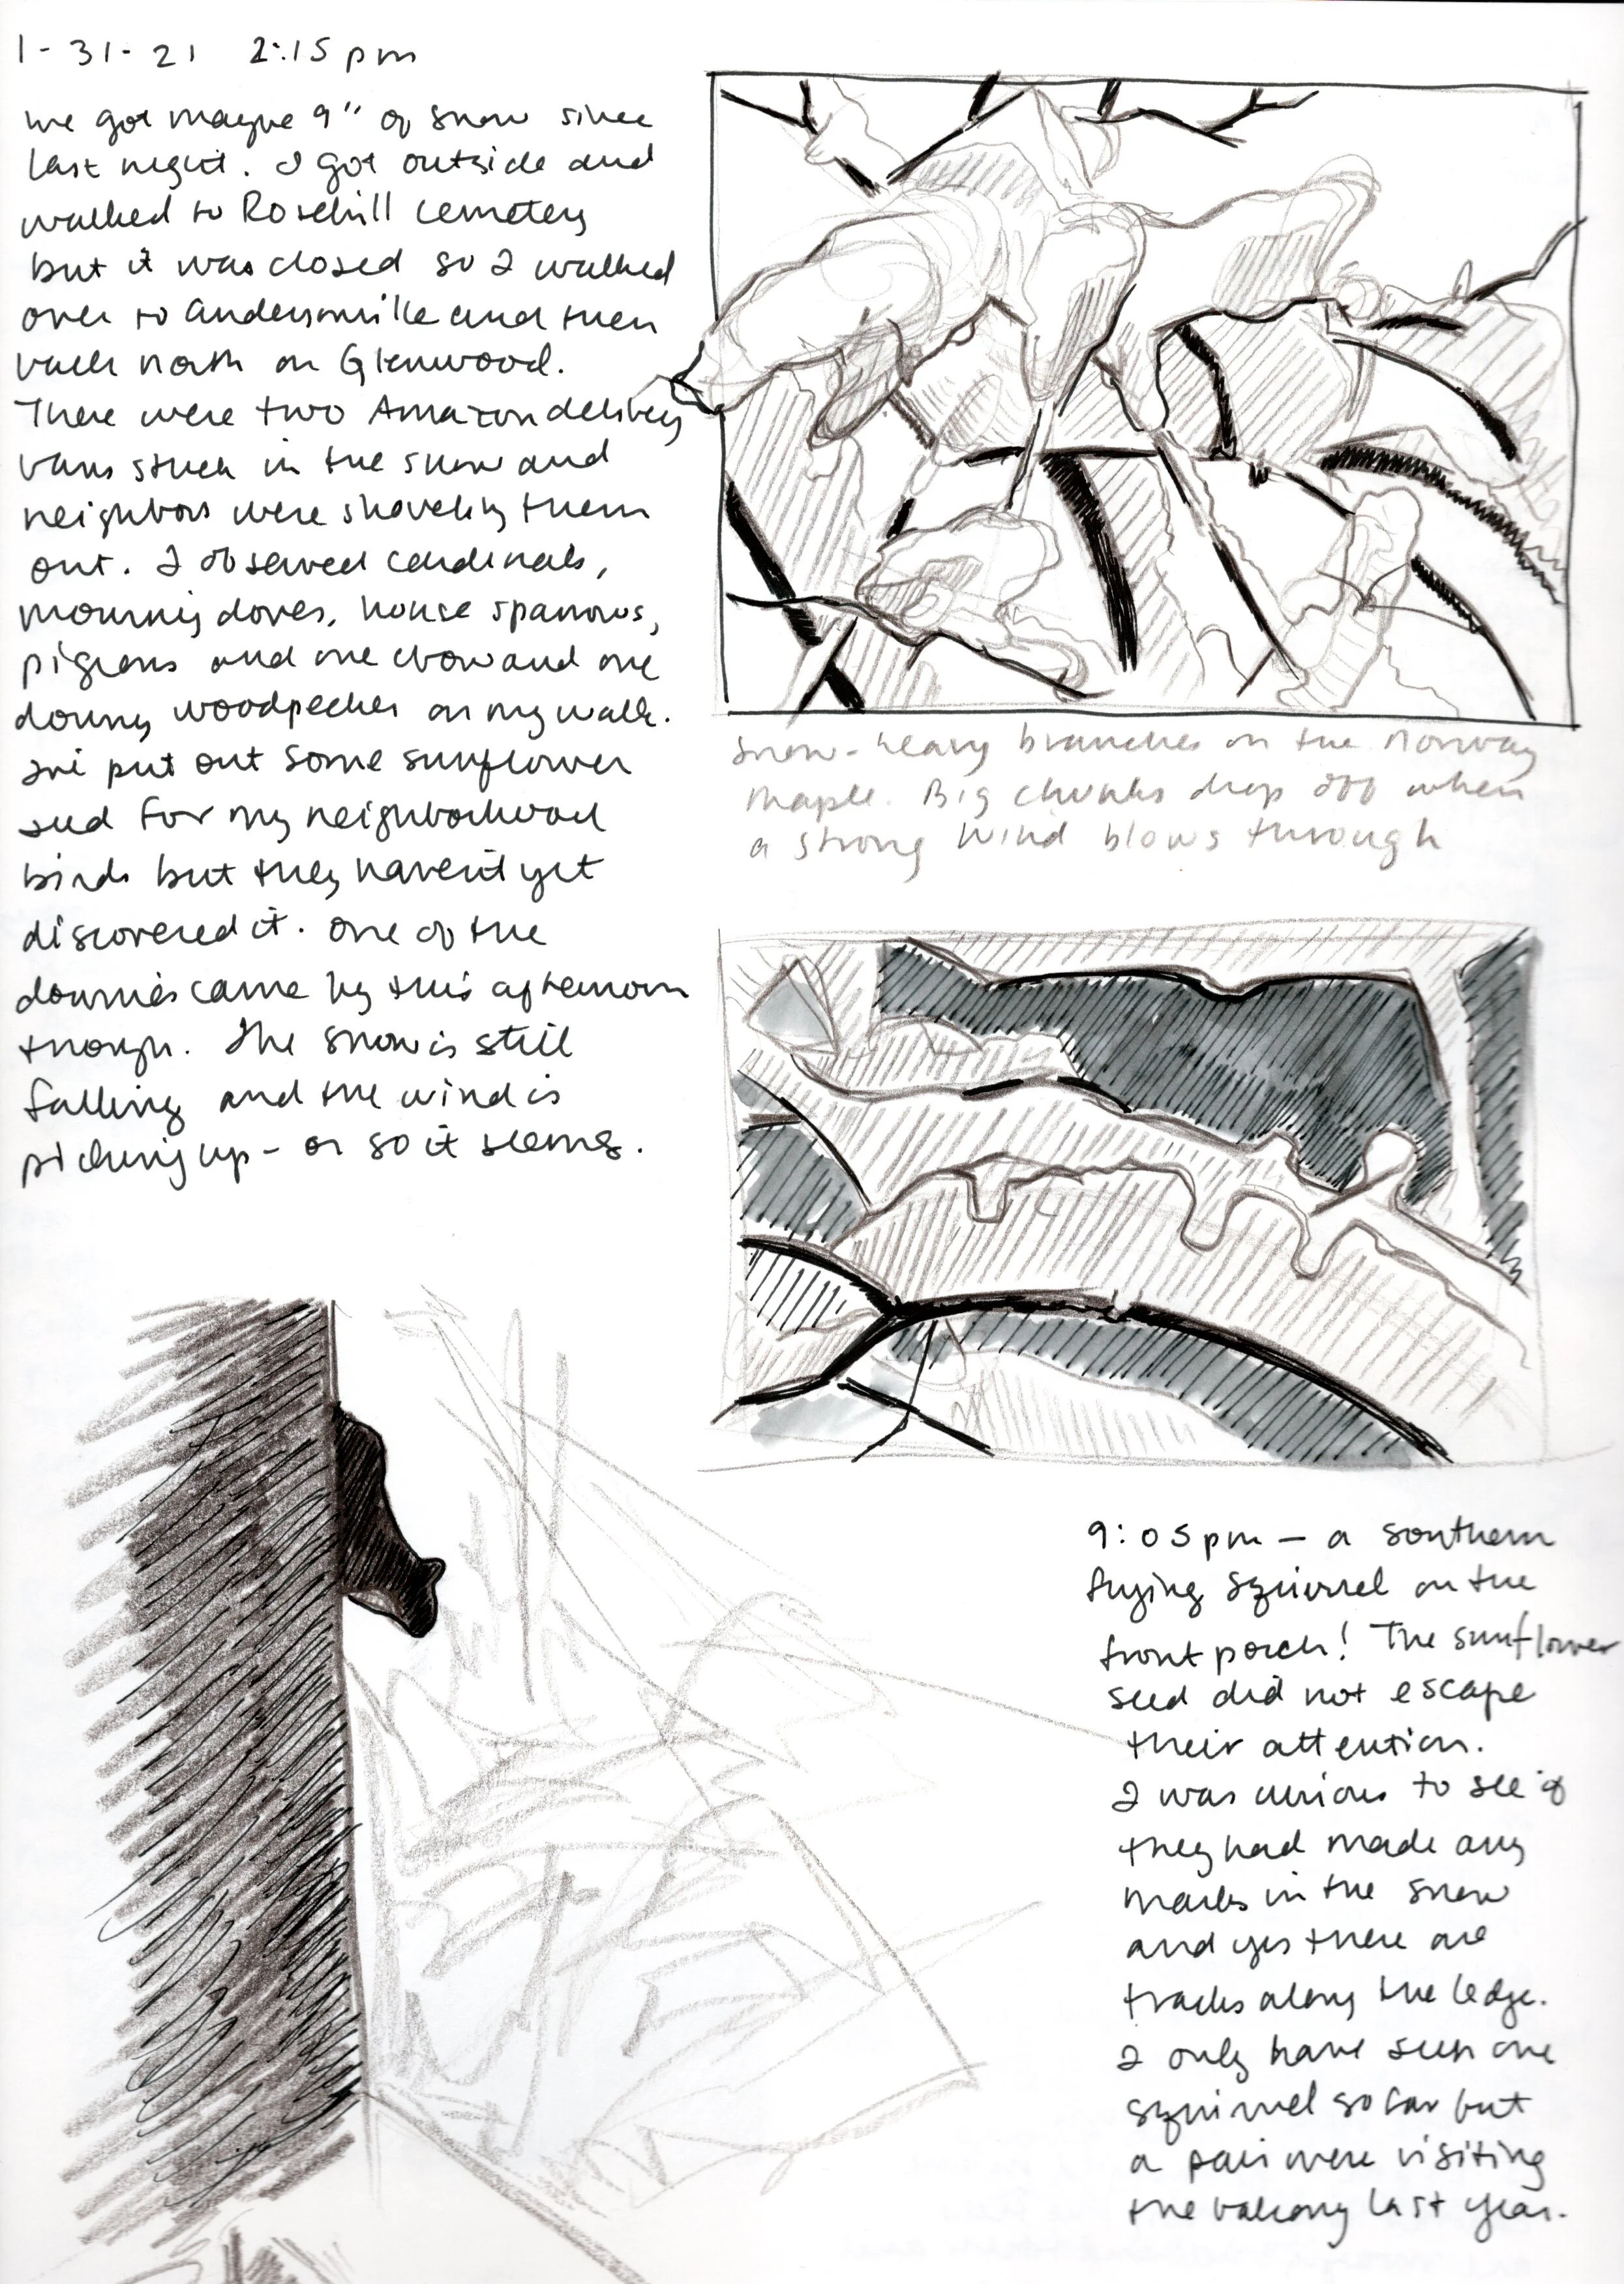 1-31-21 2:15 pm
we got maybe 9" of snow since
last night. I got outside and
walked to Rosehill cemetery
but it was closed so I walked
over to Andersonville and then
back north on Glenwood.
There were two Amazon delivery
vans stuck in the snow and
neighbors were shoveling them
out. I observed cardinals,
mourning doves, house sparrows,
pigeons and one crow and one
downy woodpecker on my walk.
I've put out some sunflower
seed for my neighborhood
birds but they haven't yet
discovered it. One of the
downies came by this afternoon
though. The snow is still
falling and the wind is
picking up - or so it seems.
snow-heavy branches on the Norway
maple. Big chunks drop off when
a strong wind blows through
9:05 pm — a southern
flying squirrel on the
front porch! The sunflower
seed did not escape
their attention.
I was curious to see if
they had made any
marks in the snow
and yes there are
tracks along the ledge.
I only have seen one
squirrel so far but
a pair were visiting
the balcony last year.